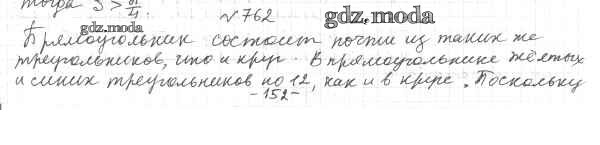 тогда S > 61/4.
№762 gdz.moda
gdz.moda
Прямоугольник состоит почти из таких же
треугольников, что и круг. В прямоугольнике жёлтых
и синих треугольников по 12, как и в круге. Поскольку
-152-